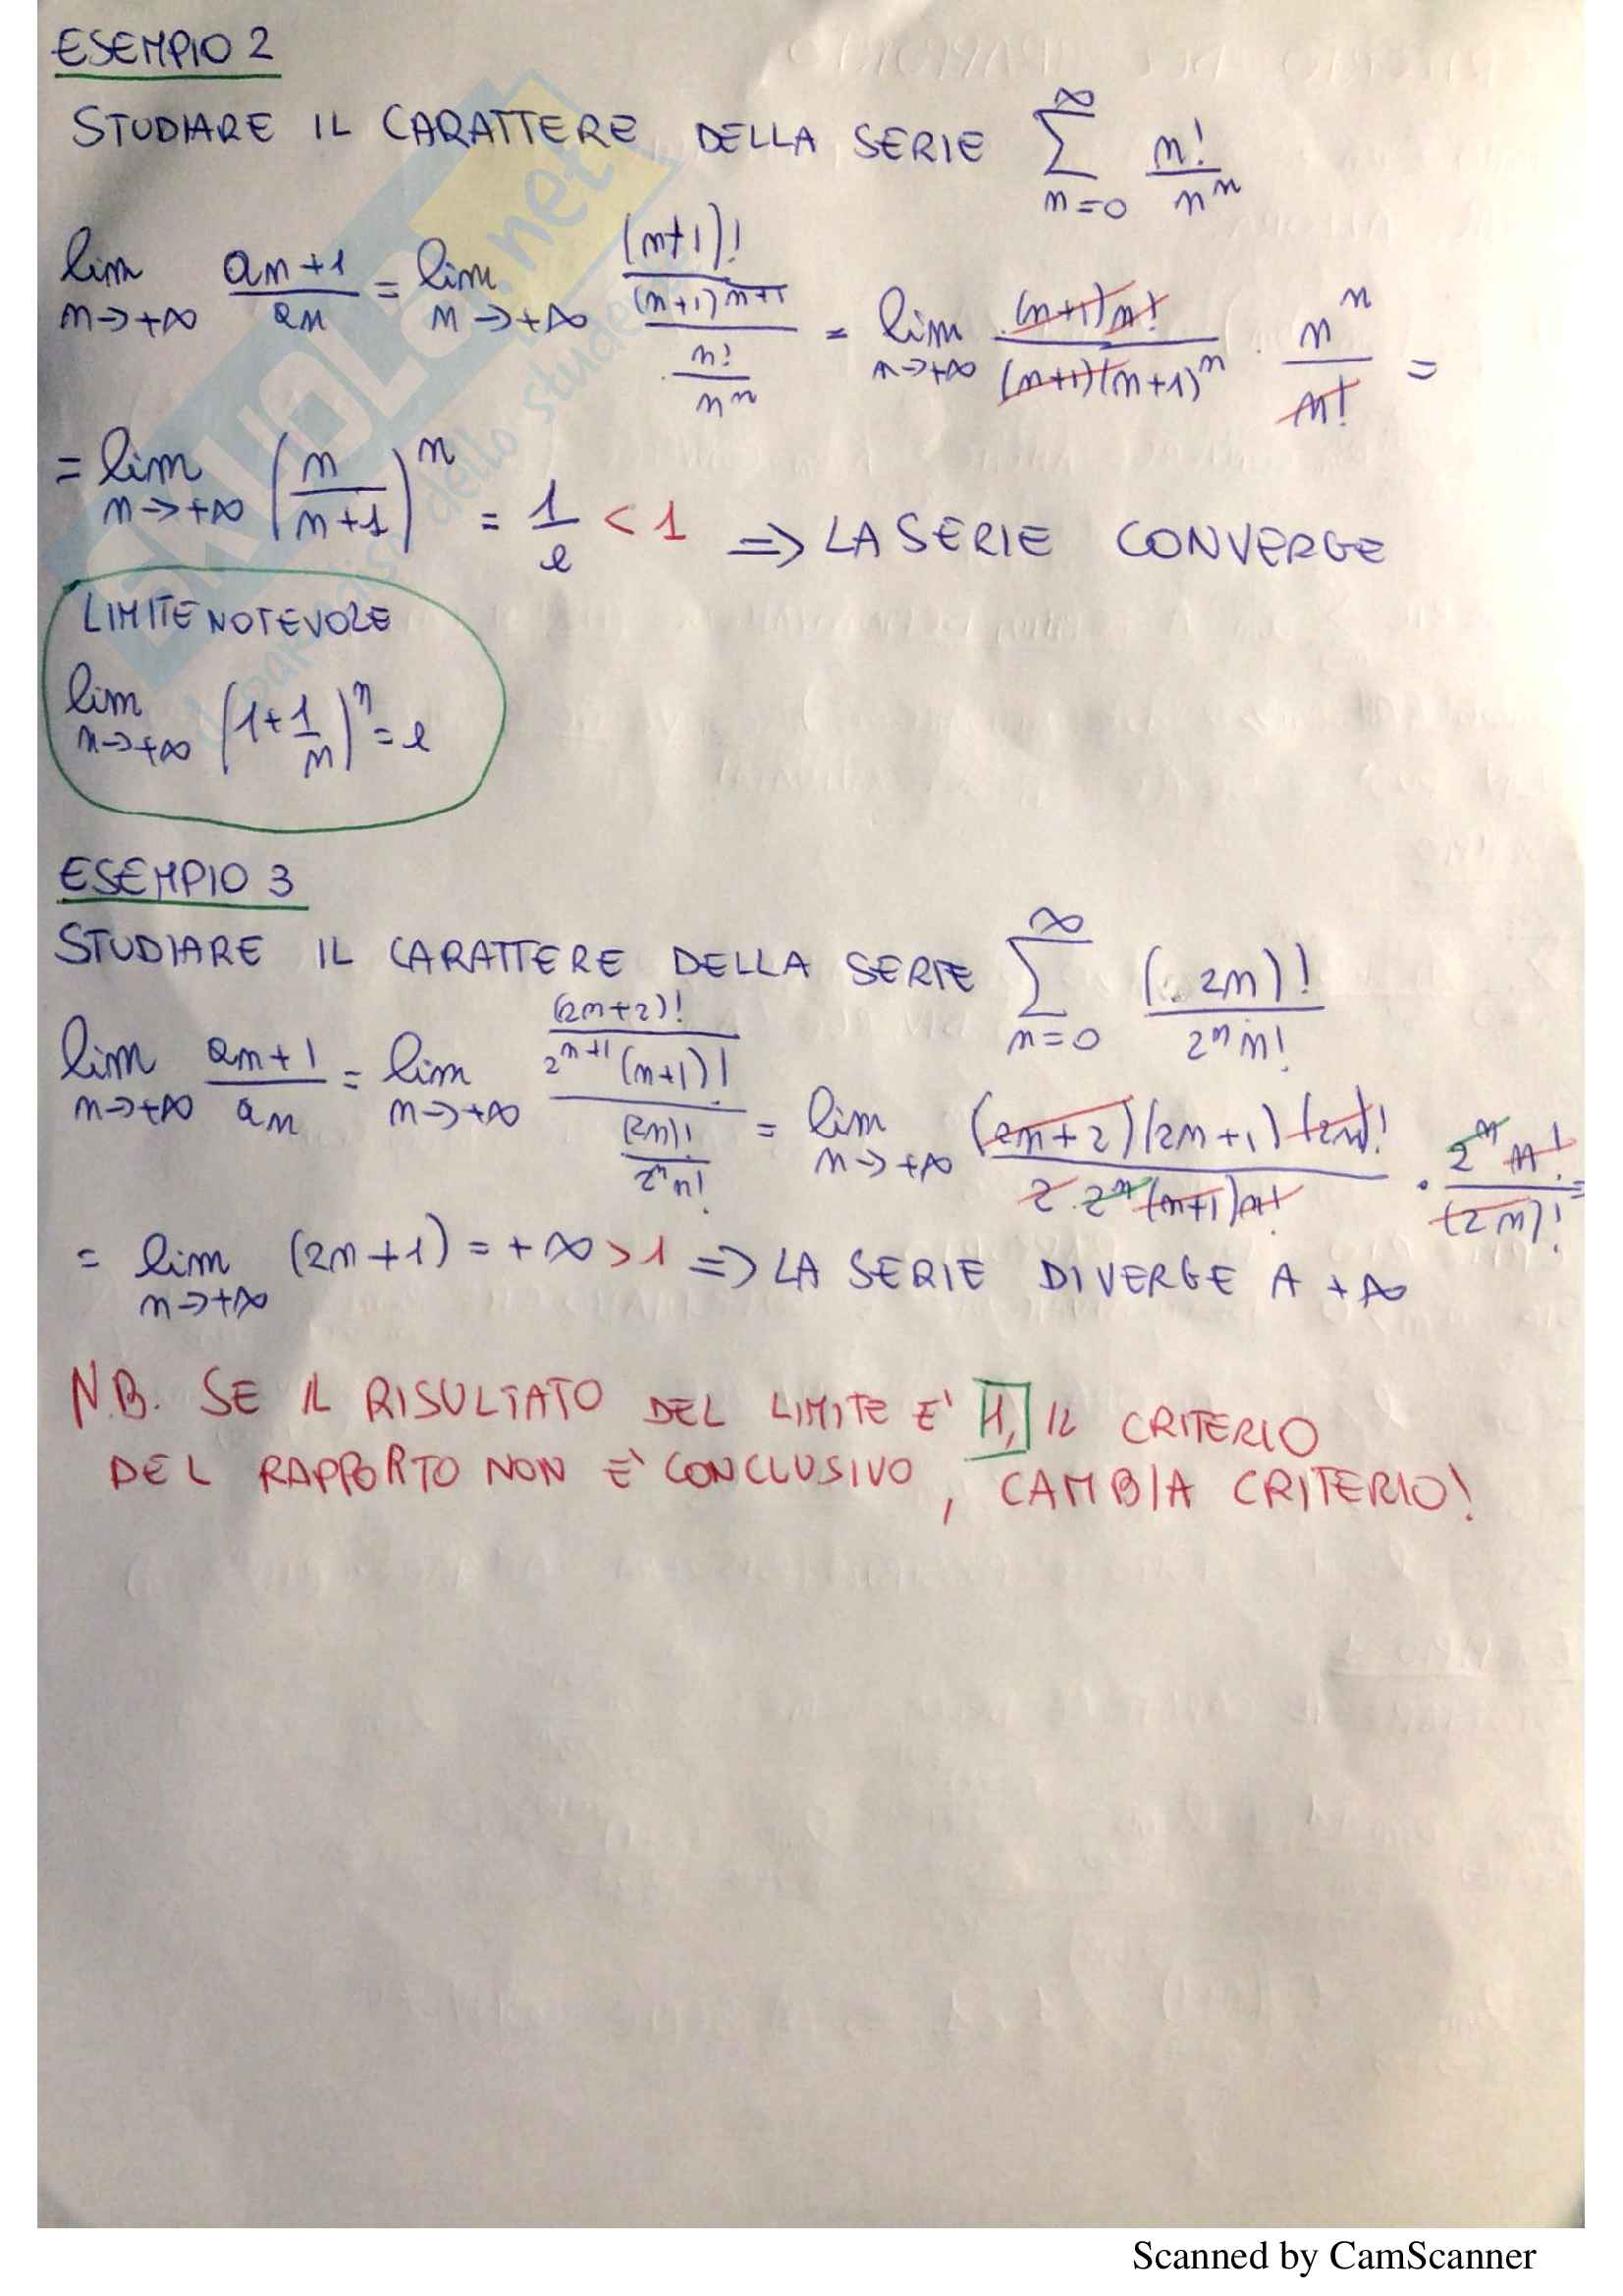 ESEMPIO 2
STUDIARE IL CARATTERE DELLA SERIE ∑_{n=0}^{∞} n!/n^n
lim_{n→+∞} a_{n+1}/a_n = lim_{n→+∞} ((n+1)!/(n+1)^{n+1})/(n!/n^n) = lim_{n→+∞} (n+1)n!/((n+1)(n+1)^n) · n^n/n! =
= lim_{n→+∞} (n/(n+1))^n = 1/e < 1 => LA SERIE CONVERGE
LIMITE NOTEVOLE
lim_{n→+∞} (1+1/n)^n = e
ESEMPIO 3
STUDIARE IL CARATTERE DELLA SERIE ∑_{n=0}^{∞} (2n)!/(2^n n!)
lim_{n→+∞} a_{n+1}/a_n = lim_{n→+∞} ((2n+2)!/(2^{n+1}(n+1)!))/((2n)!/(2^n n!)) = lim_{n→+∞} (2n+2)(2n+1)(2n)!/(2·2^n(n+1)n!) · 2^n n!/(2n)! =
= lim_{n→+∞} (2n+1) = +∞ > 1 => LA SERIE DIVERGE A +∞
N.B. SE IL RISULTATO DEL LIMITE E' 1, IL CRITERIO
DEL RAPPORTO NON E' CONCLUSIVO, CAMBIA CRITERIO!
SKUOLA.net
Scanned by CamScanner